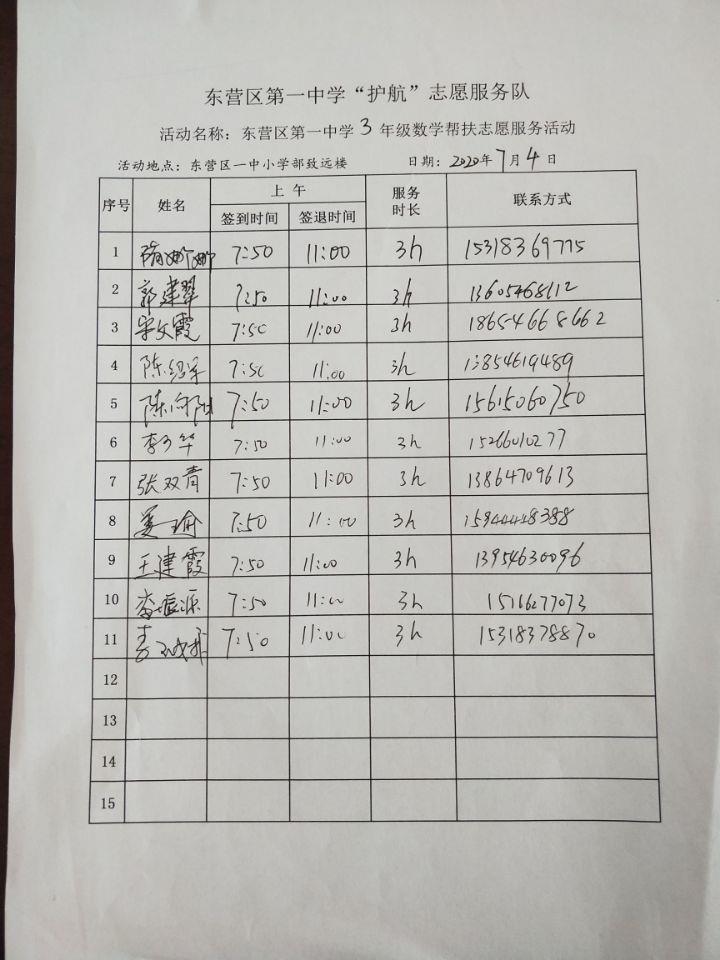 东营区第一中学“护航”志愿服务队
活动名称：东营区第一中学 3 年级数学帮扶志愿服务活动
活动地点：东营区一中小学部致远楼 日期：2020年 7月 4 日
序号 姓名 上 午 服务时长 联系方式
签到时间 签退时间
1 隋娜娜 7:50 11:00 3h 15318369775
2 郭建翠 7:50 11:00 3h 13605468112
3 宋文霞 7:50 11:00 3h 18654668662
4 陈绍军 7:50 11:00 3h 13854619489
5 陈向阳 7:50 11:00 3h 15615060750
6 7:50 11:00 3h 15266010277
7 张双青 7:50 11:00 3h 13864709613
8 姜瑜 7:50 11:00 3h
9 王建霞 7:50 11:00 3h 13954630096
10 7:50 11:00 3h 15166277073
11 7:50 11:00 3h 15318378870
12
13
14
15